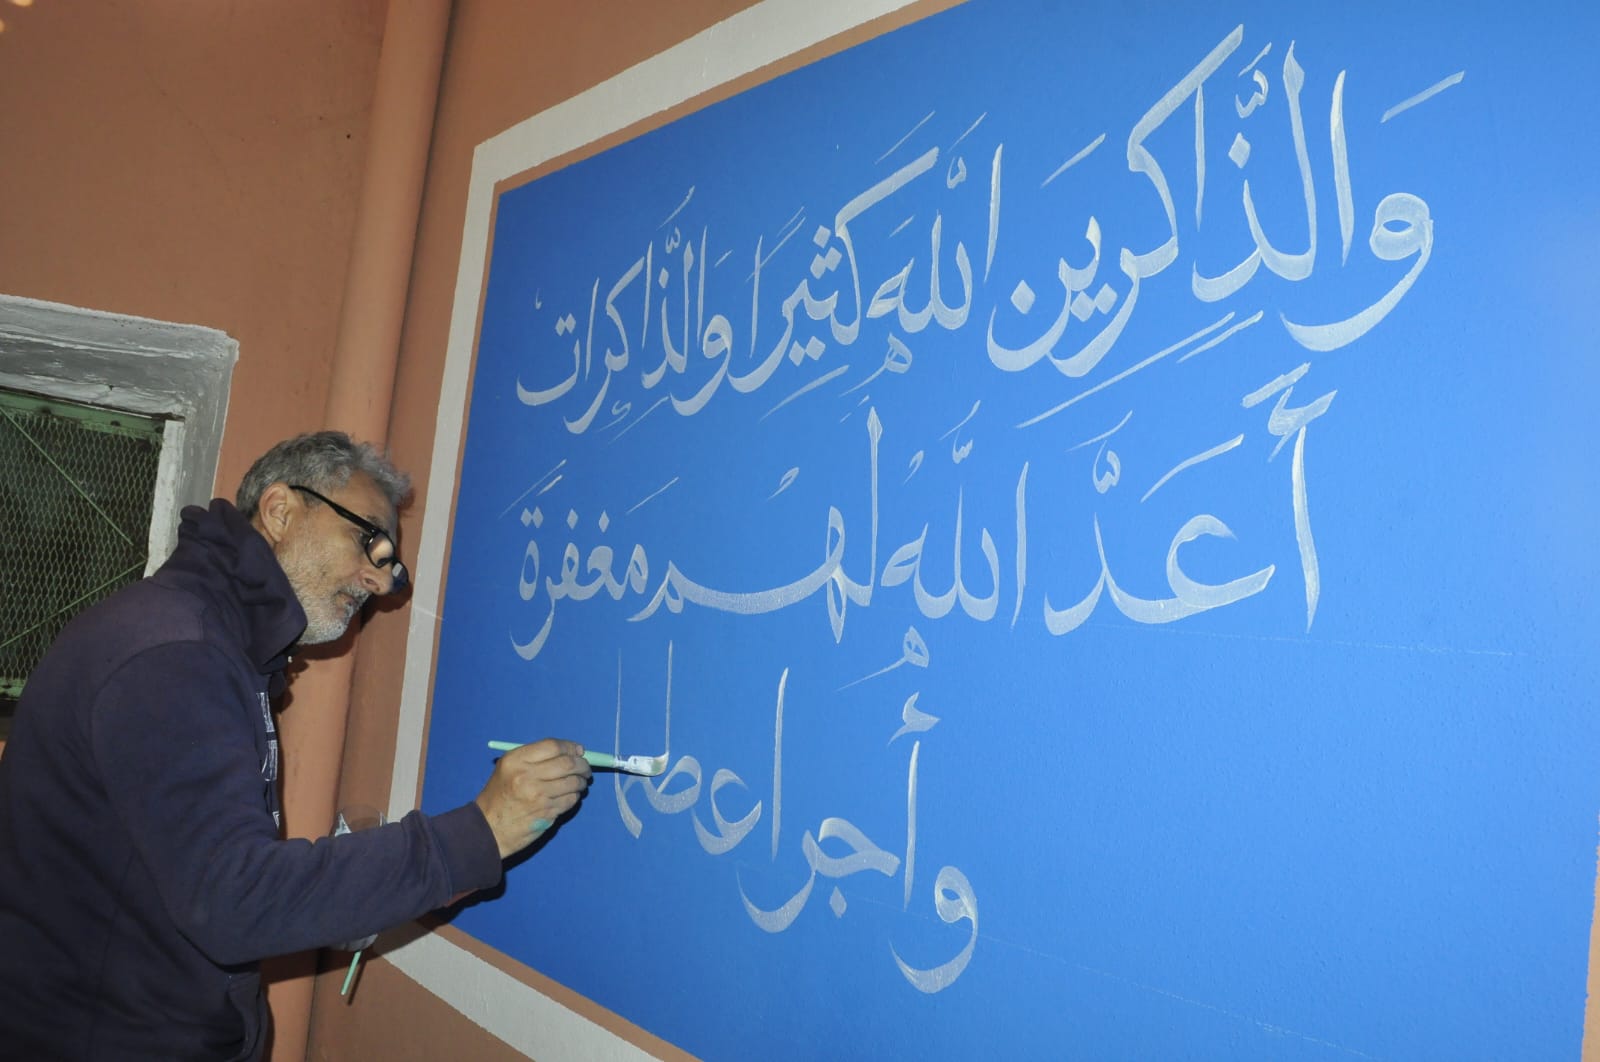 وَالذَّاكِرِينَ اللَّهَ كَثِيرًا وَالذَّاكِرَاتِ
أَعَدَّ اللَّهُ لَهُم مَّغْفِرَةً
وأجرا عظما